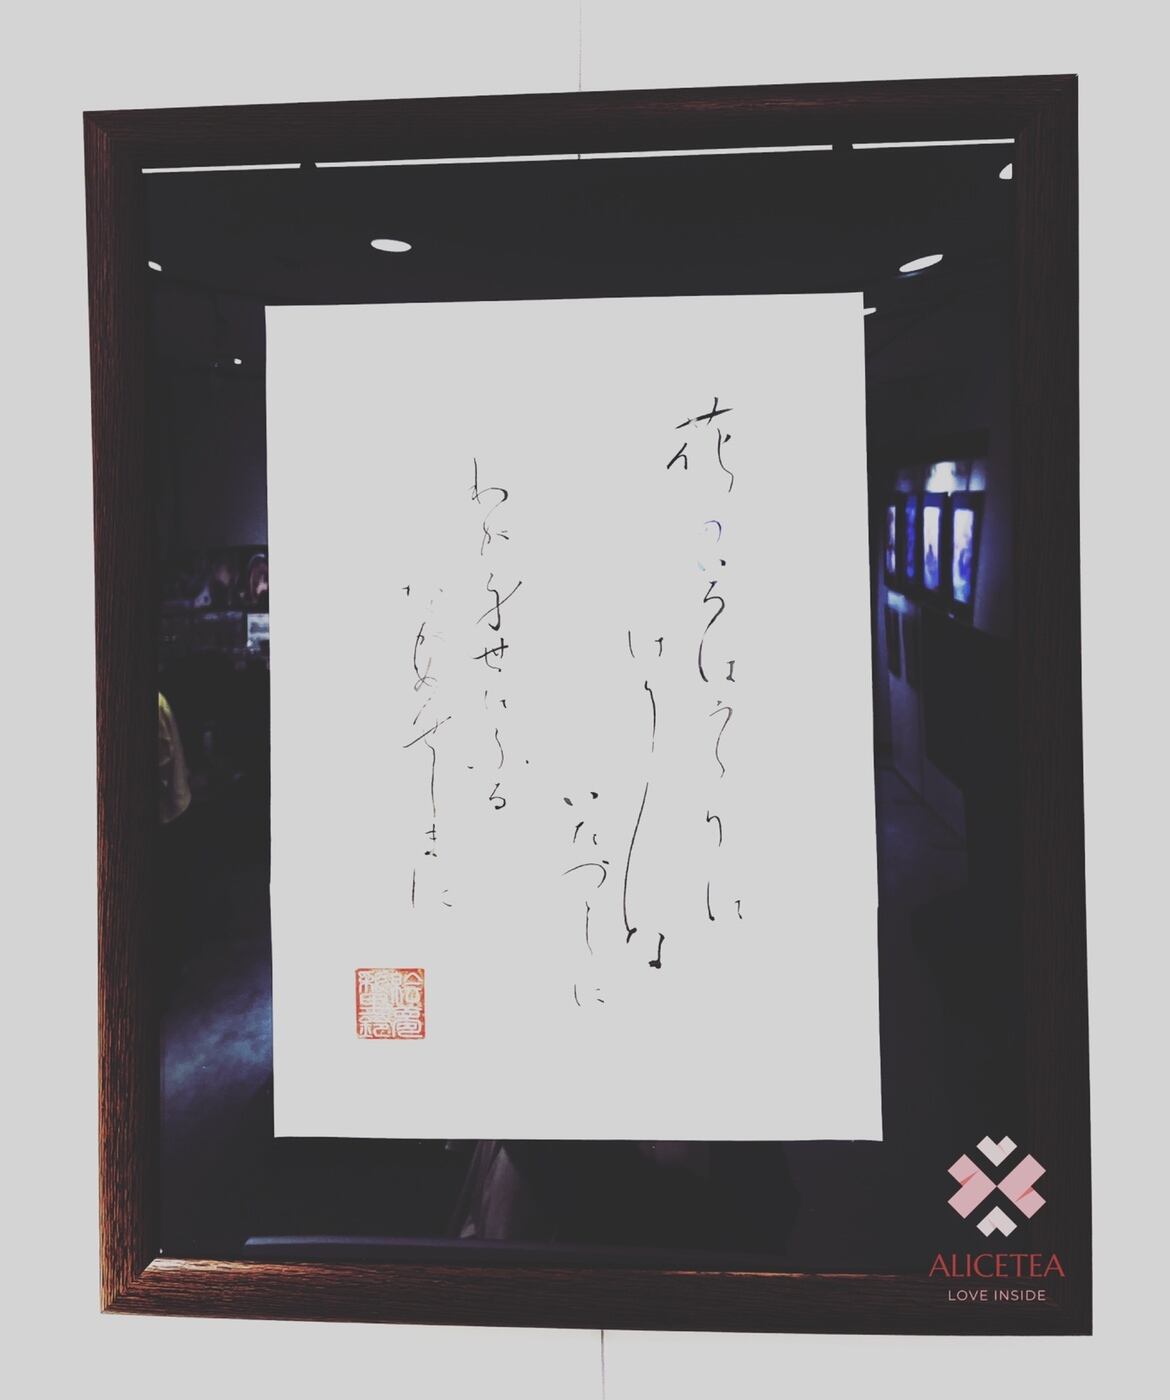 花のいろはうつりに
けりな
いたづらに
わが身世にふる
ながめせしまに
ALICETEA
LOVE INSIDE